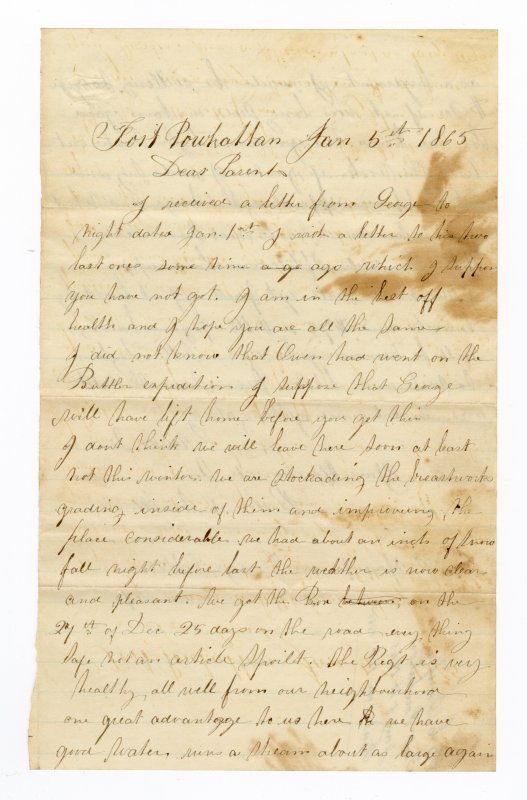 Fort Powhattan Jan. 5st 1865
Dear Parents
I received a letter from George to
night dated Jan. 1st I writ a letter to his two
last ones some time a go ago which I suppose
you have not got. I am in the best off
health and I hope you are all the same
I did not know that Owen had went on the
expedition I suppose that George
will have left home before you get this
I dont think we will leave here soon at least
not this winter. we are stockading the breastworks
grading inside of them and improveing the
place considerable we had about an inch of snow
fall night before last the weather is now clear
and pleasant. We got the Box between on the
27th of Dec 25 days on the road evry thing
safe not an article spoilt. the Regt is very
healthy all well from our neighbourhood
one great advantage to us here is we have
good water, runs a stream about as large again